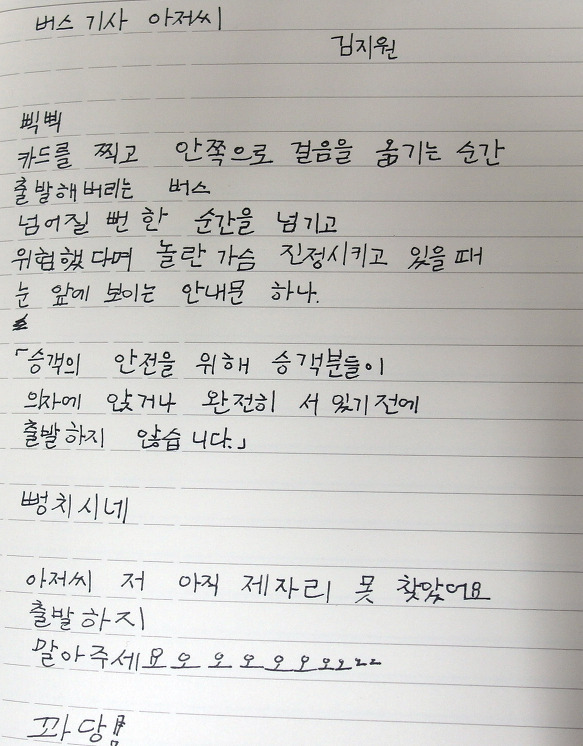 버스 기사 아저씨
김지원
삑삑
카드를 찍고 안쪽으로 걸음을 옮기는 순간
출발해버리는 버스
넘어질 뻔 한 순간을 넘기고
위험했다며 놀란 가슴 진정시키고 있을때
눈 앞에 보이는 안내문 하나.
「승객의 안전을 위해 승객분들이
의자에 앉거나 완전히 서 있기전에
출발하지 않습니다.」
뻥치시네
아저씨 저 아직 제자리 못 찾았어요
출발하지
말아주세요오오오오오오오오
꽈당!!